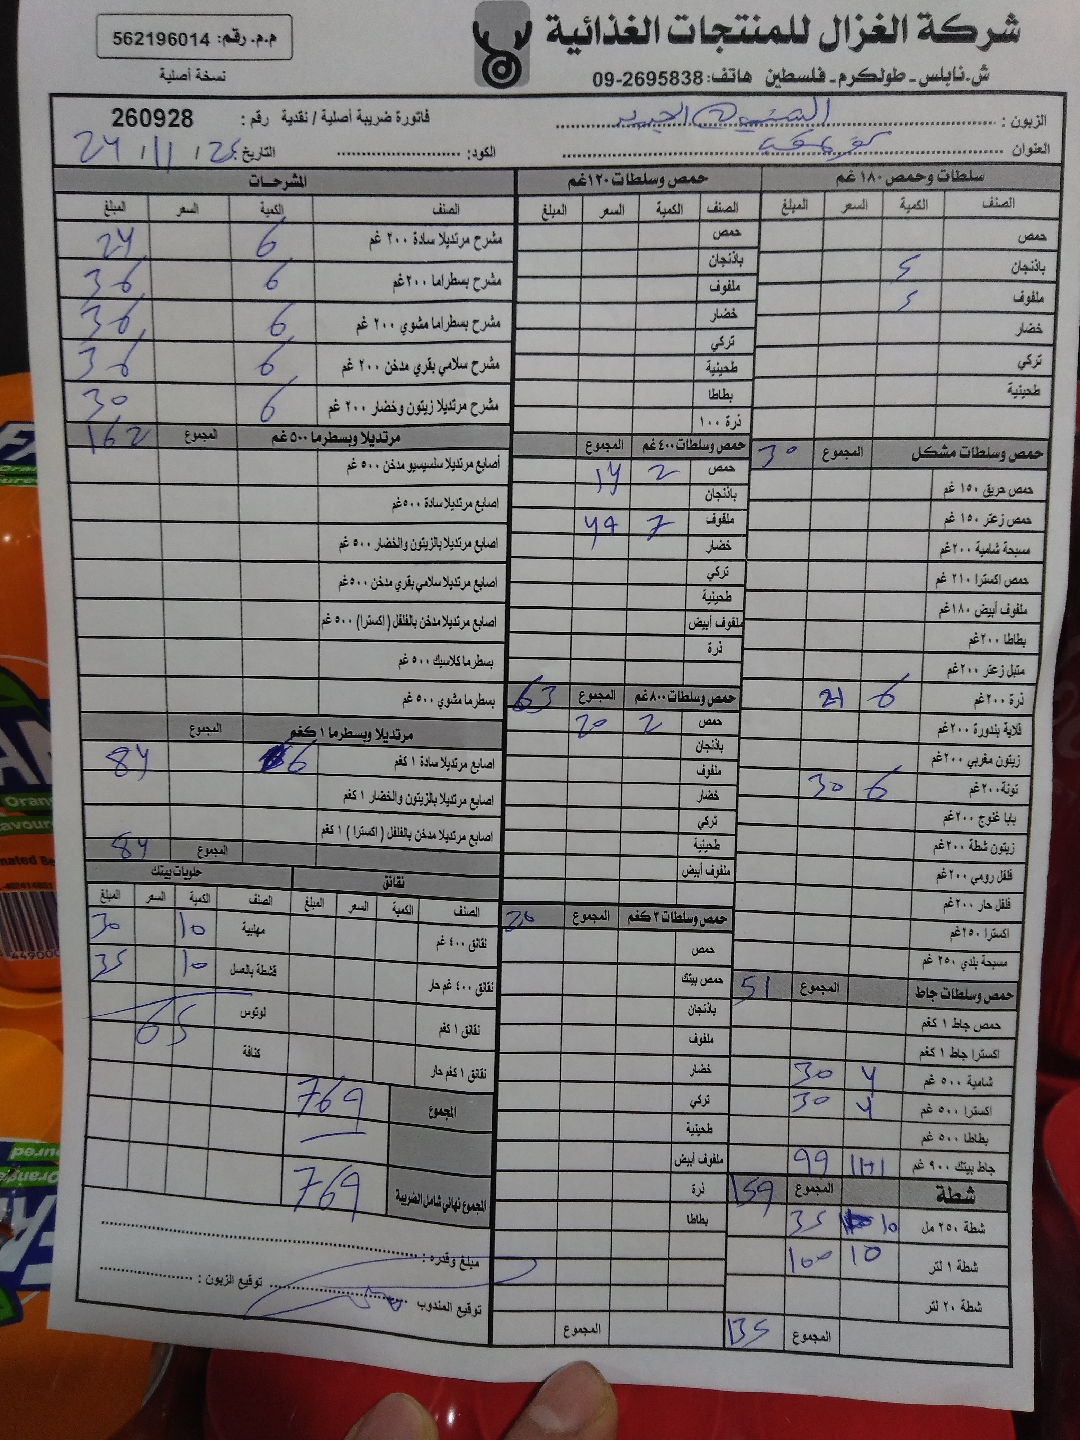 شركة الغزال للمنتجات الغذائية
ش.نابلس - طولكرم - فلسطين هاتف: 09-2695838
م.م. رقم: 562196014
نسخة أصلية
الزبون :
فاتورة ضريبة أصلية / نقدية رقم : 260928
العنوان
الكود:
التاريخ: 24 / 11 / 25
سلطات وحمص ١٨٠ غم
الصنف الكمية السعر المبلغ
حمص
باذنجان 5
ملفوف 5
خضار
تركي
طحينية
حمص وسلطات مشكل المجموع 30
حمص حريق ١٥٠ غم
حمص زعتر ١٥٠ غم
مسبحة شامية ٢٠٠غم
حمص اكسترا ٢١٠ غم
ملفوف أبيض ١٨٠غم
بطاطا ٢٠٠غم
متبل زعتر ٢٠٠غم
ذرة ٢٠٠غم 6 21
قلاية بندورة ٢٠٠غم
زيتون مغربي ٢٠٠غم
تونة ٢٠٠غم 6 30
بابا غنوج ٢٠٠غم
زيتون شطة ٢٠٠غم
فلفل رومي ٢٠٠غم
فلفل حار ٢٠٠غم
اكسترا ٢٥٠غم
مسبحة بلدي ٢٥٠ غم
حمص وسلطات جاط المجموع 51
حمص جاط ١ كغم
اكسترا جاط ١ كغم
شامية ٥٠٠ غم 4 30
اكسترا ٥٠٠ غم 4 30
بطاطا ٥٠٠ غم
جاط بيتك ٩٠٠ غم 11+1 99
شطة المجموع 159
شطة ٢٥٠ مل 10 35
شطة ١ لتر 10 100
شطة ٢٠ لتر
المجموع 135
حمص وسلطات ١٢٠غم
الصنف الكمية السعر المبلغ
حمص
باذنجان
ملفوف
خضار
تركي
طحينية
بطاطا
ذرة ١٠٠
حمص وسلطات ٤٠٠ غم المجموع
حمص 2 14
باذنجان
ملفوف 7 49
خضار
تركي
طحينية
ملفوف أبيض
ذرة
حمص وسلطات ٨٠٠غم المجموع 63
حمص 2 20
باذنجان
ملفوف
خضار
تركي
طحينية
ملفوف أبيض
حمص وسلطات ٣كغم المجموع 20
حمص
حمص بيتك
باذنجان
ملفوف
خضار
تركي
طحينية
ملفوف أبيض
ذرة
بطاطا
المجموع
المشرحات
الصنف الكمية السعر المبلغ
مشرح مرتديلا سادة ٢٠٠ غم 6 24
مشرح بسطراما ٢٠٠غم 6 36
مشرح بسطراما مشوي ٢٠٠ غم 6 36
مشرح سلامي بقري مدخن ٢٠٠ غم 6 36
مشرح مرتديلا زيتون وخضار ٢٠٠ غم 6 30
مرتديلا وبسطرما ٥٠٠ غم المجموع 162
أصابع مرتديلا سلسيسيو مدخن ٥٠٠ غم
اصابع مرتديلا سادة ٥٠٠غم
اصابع مرتديلا بالزيتون والخضار ٥٠٠ غم
اصابع مرتديلا سلامي بقري مدخن ٥٠٠غم
اصابع مرتديلا مدخن بالفلفل ( اكسترا) ٥٠٠ غم
بسطرما كلاسيك ٥٠٠ غم
بسطرما مشوي ٥٠٠ غم
مرتديلا وبسطرما ١ كغم المجموع
اصابع مرتديلا سادة ١ كغم 6 84
اصابع مرتديلا بالزيتون والخضار ١ كغم
اصابع مرتديلا مدخن بالفلفل ( اكسترا ) ١ كغم
المجموع 84
نقانق
الصنف الكمية السعر المبلغ
نقانق ٤٠٠ غم
نقانق ٤٠٠ غم حار
نقانق ١ كغم
نقانق ١ كغم حار
حلويات بيتك
الصنف الكمية السعر المبلغ
مهلبية 10 30
قشطة بالعسل 10 35
لوتوس
كنافة
65
المجموع 769
المجموع نهائي شامل الضريبة 769
مبلغ وقدره :
توقيع المندوب
توقيع الزبون :